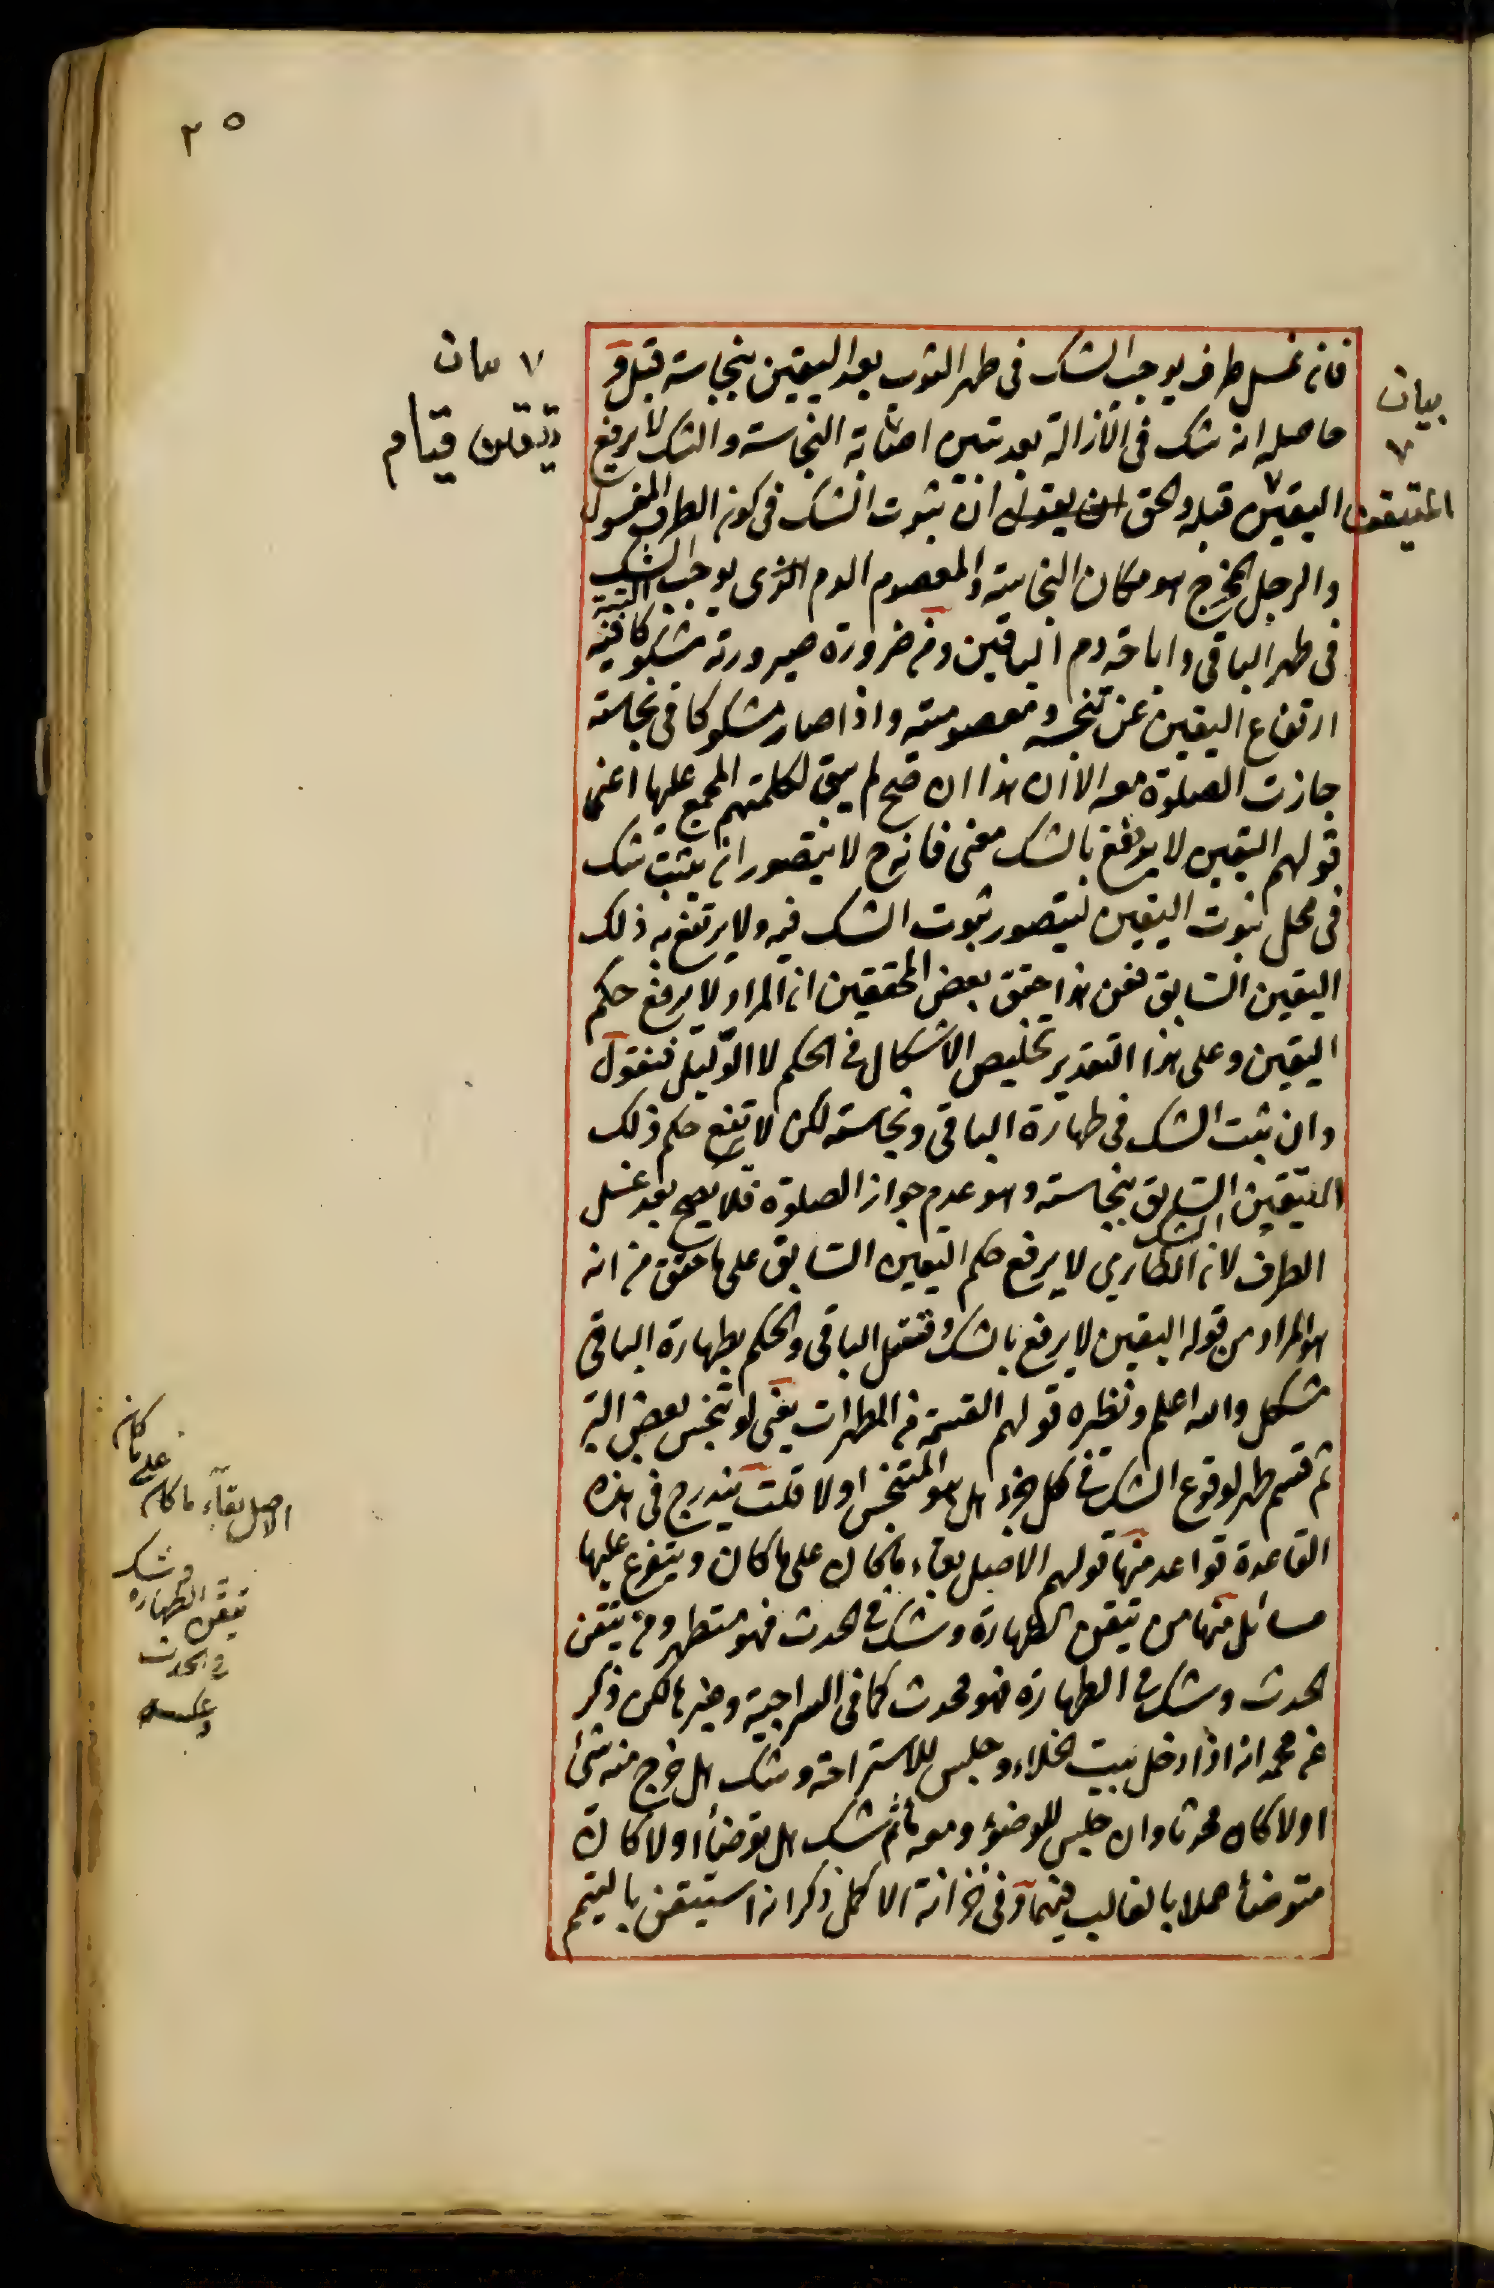 ٢٥
فانه غسل طرف يوجب الشك في طهر الثوب بعد اليقين بنجاسته قبل و
حاصله انه شك في الازالة بعد تيقن اصابة النجاسة والشك لا يرفع
اليقين قبله والحق ان ثبوت الشك في كون الطرف المغسول
والرجل المخرج هو مكان النجاسة والمعصوم الدم الذي يوجب الشك البتة
في طهر الباقي واباحة دم الباقين ومن ضرورة صيرورته مشكوكا فيه
ارتفاع اليقين عن تنجسه ومعصوميته واذا صار مشكوكا في نجاسته
جازت الصلوة معه الا ان هذا ان صح لم يبق لكلمتهم المجمع عليها اعني
قولهم اليقين لا يرتفع بالشك معنى فانه ح لا يتصور ان يثبت شك
في محل ثبوت اليقين ليتصور ثبوت الشك فيه ولا يرتفع به ذلك
اليقين السابق فعن هذا حقق بعض المحققين ان المراد لا يرفع حكم
اليقين وعلى هذا التقدير تخليص الاشكال في الحكم لا الدليل فنقول
وان ثبت الشك في طهارة الباقي ونجاسته لكن لا يرتفع حكم ذلك
اليقين السابق بنجاسته وهو عدم جواز الصلوة فلا يصح بعد غسل
الطرف لان الشك الطاري لا يرفع حكم اليقين السابق على ما حقق من انه
هو المراد من قوله اليقين لا يرفع بالشك فقتل الباقي والحكم بطهارة الباقي
مشكل والله اعلم ونظيره قولهم القسمة من المطهرات يعني لو تنجس بعض البر
ثم قسم طهر لوقوع الشك في كل جزء هل هو المتنجس او لا قلت يندرج في هذه
القاعدة قواعد منها قولهم الاصل بقاء ما كان على ما كان ويتفرع عليها
مسائل منها من تيقن الطهارة وشك في الحدث فهو متطهر ومن تيقن
الحدث وشك في الطهارة فهو محدث كما في السراجية وغيرها لكن ذكر
عن محمد انه اذا دخل بيت الخلاء وجلس للاستراحة وشك هل خرج منه شئ
او لا كان محدثا وان جلس للوضوء ومعه ماء ثم شك هل توضأ او لا كان
متوضأ عملا بالغالب فيهما وفي خزانة الاكمل ذكر انه استيقن بالتيمم
بيان
المتيقن
٧ بيان
تيقن قيام
الاصل بقاء ما كان
على ما كان
تيقن الطهارة
وشك
في الحدث
وعكسه